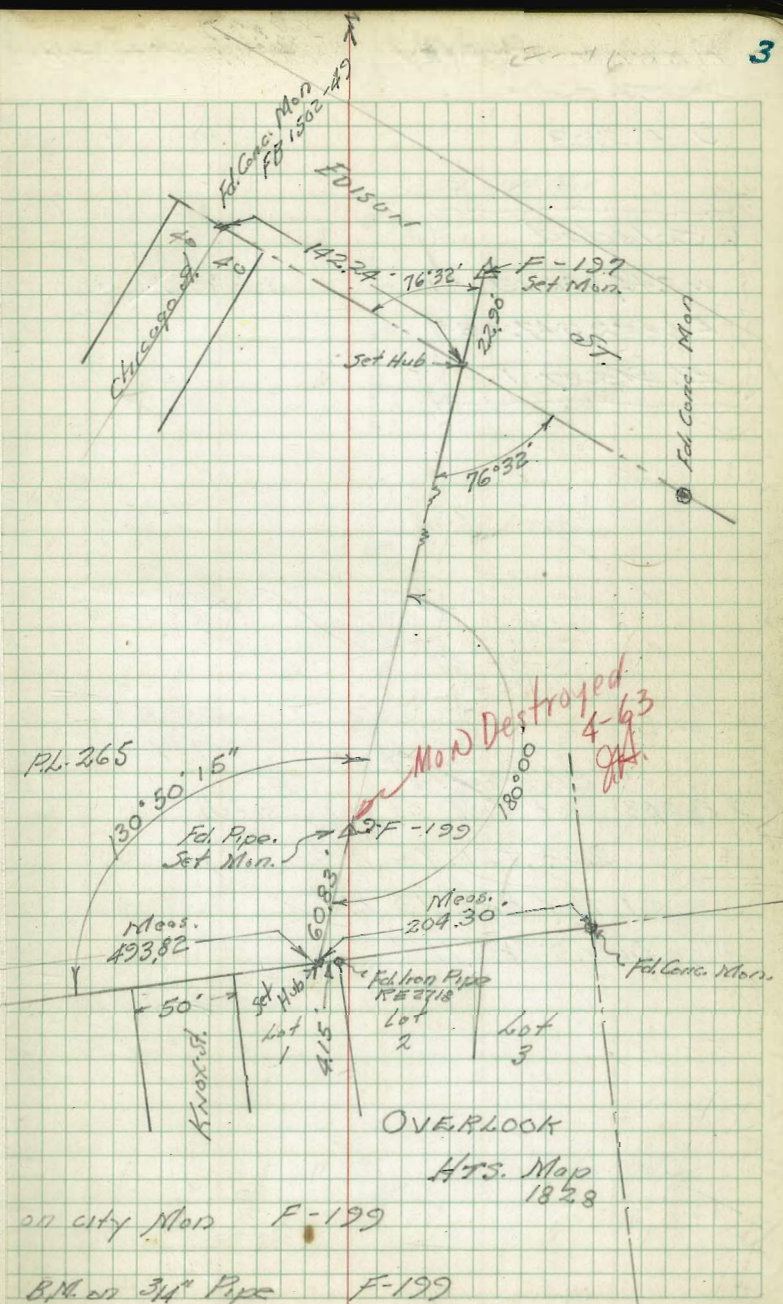 3
Fd. Conc. Mon
FB 1502-49
EDISON
ST.
40
40
Chicago St.
142.24'
76°32'
F-197
Set Mon.
22.90'
Set Hub
Fd. Conc. Mon
76°32'
Mon Destroyed
4-63
P.L. 265
130°50'15"
180°00'
Fd. Pipe.
Set Mon.
F-199
60.83'
Meas.
493.82
Meas.
204.30'
Fd. Conc. Mon.
50'
Set
Hub
Fd. Iron Pipe
RE 2718
Lot
1
4.15'
Lot
2
Lot
3
Knox St.
OVERLOOK
HTS. Map
1828
on city Mon F-199
B.M. on 3/4" Pipe F-199